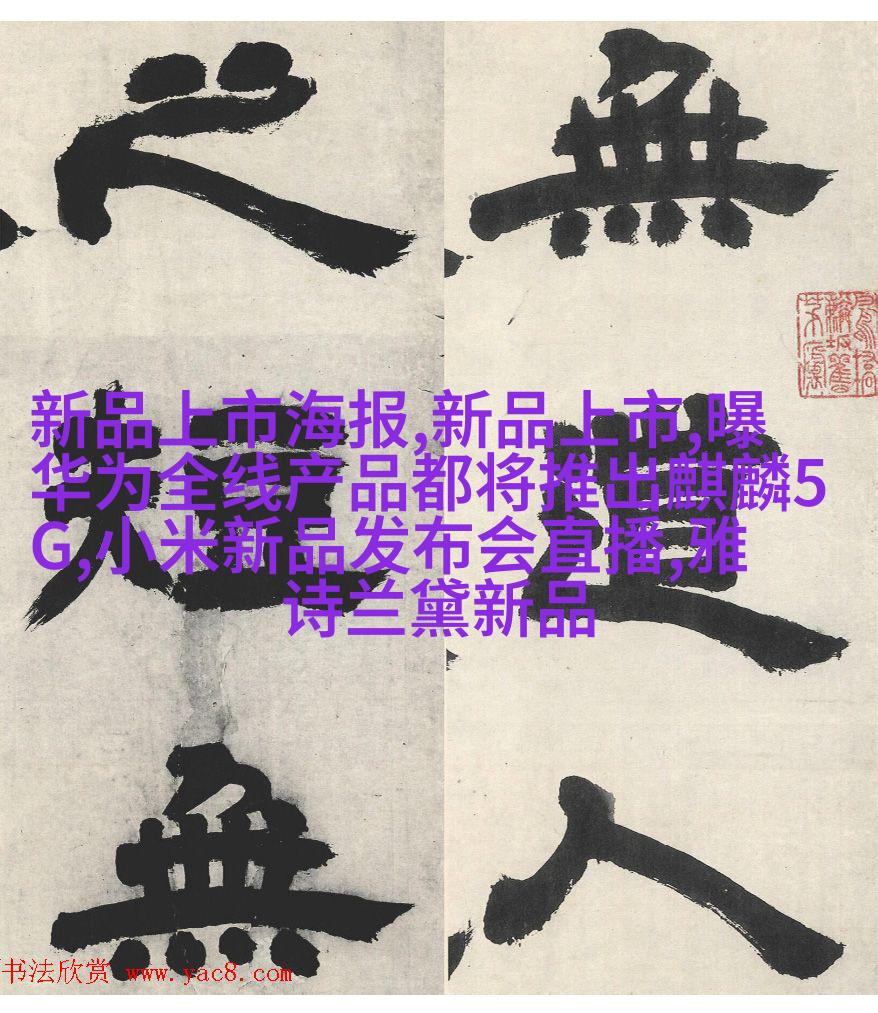 無
道
人
之
短
無
新品上市海报,新品上市,曝
华为全线产品都将推出麒麟5
G,小米新品发布会直播,雅
诗兰黛新品
书法欣赏 www.yac8.com